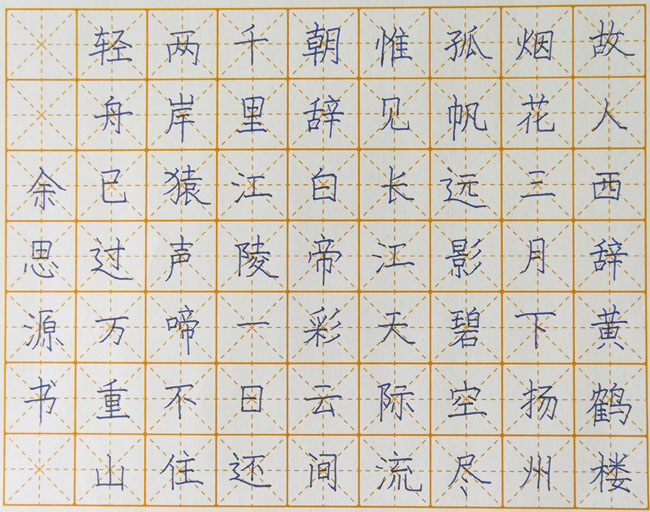 故人西辞黄鹤楼
烟花三月下扬州
孤帆远影碧空尽
惟见长江天际流
朝辞白帝彩云间
千里江陵一日还
两岸猿声啼不住
轻舟已过万重山
余思源书